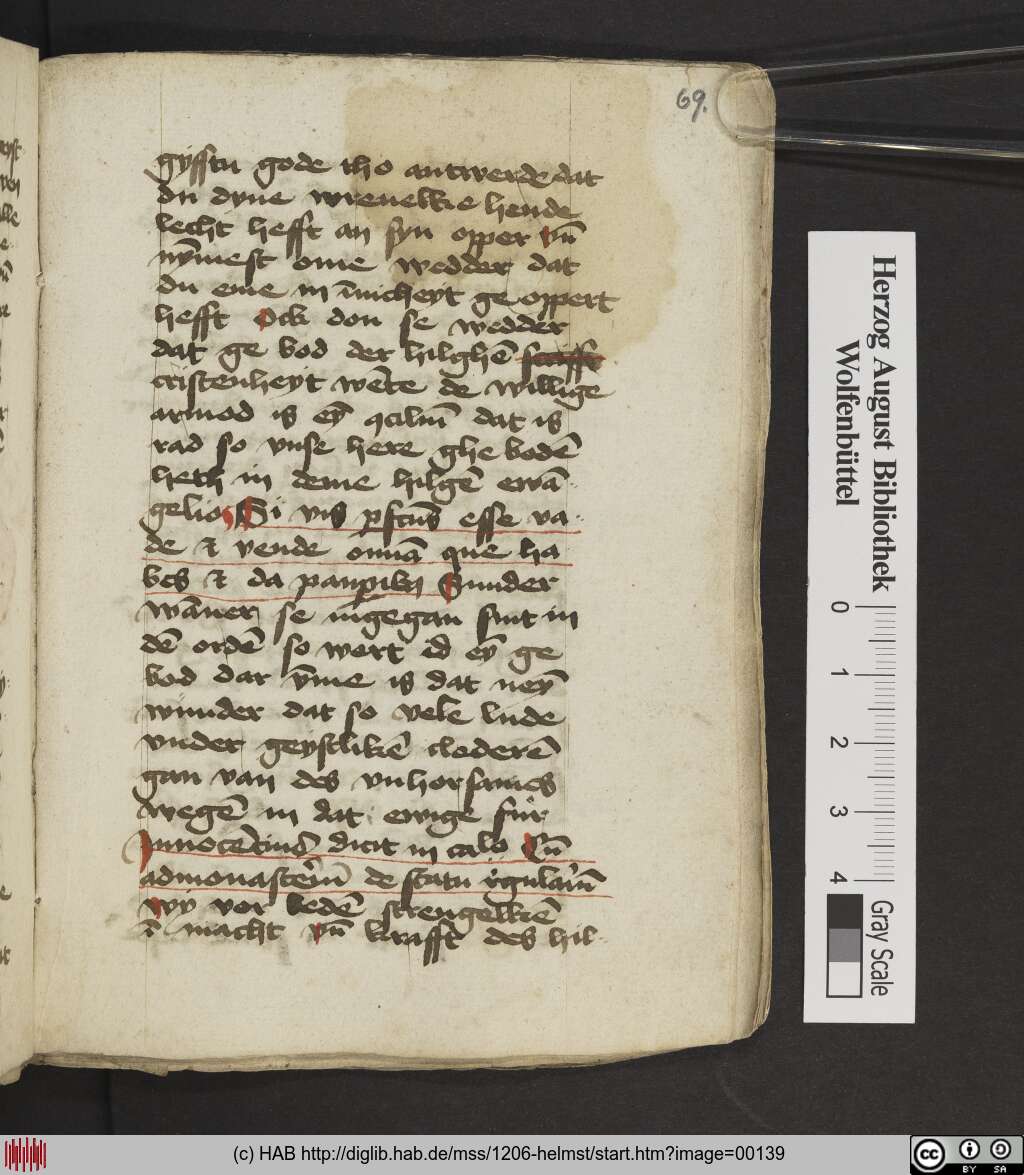 69.
gyfftu gode tho antwerde dat
du dyne wreuelke hende
lecht hefft an syn opper vn̄
nȳmest ome wedder dat
du eme in īnicheyt ge oppert
hefft Ock don se wedder
dat ge bod der hilghē
cristenheyt wēte de willige
armod is eȳ ꝯciliū dat is
rad so vnse here ghe bodē
heth in deme hilgē ewā
gelio Si vis ꝑfctus esse va
de et vende omnīa que ha
bes et da pauꝑibꝫ Sunder
wāner se īngegan sint in
dē ordē so wert id eȳ ge
bod dar v̄me is dat neȳ
wunder dat so vele lude
vnder geystlikē clederē
gan van des vnhorsames
wegē in dat ewige fur
Innocētius dicit in calo Cū
ad monasteriū de statu rēgulariū
wy vor bedē strengelkē
ī macht vn̄ krafft des hil
Herzog August Bibliothek
Wolfenbüttel
0 1 2 3 4
Gray Scale
(c) HAB http://diglib.hab.de/mss/1206-helmst/start.htm?image=00139
cc BY SA